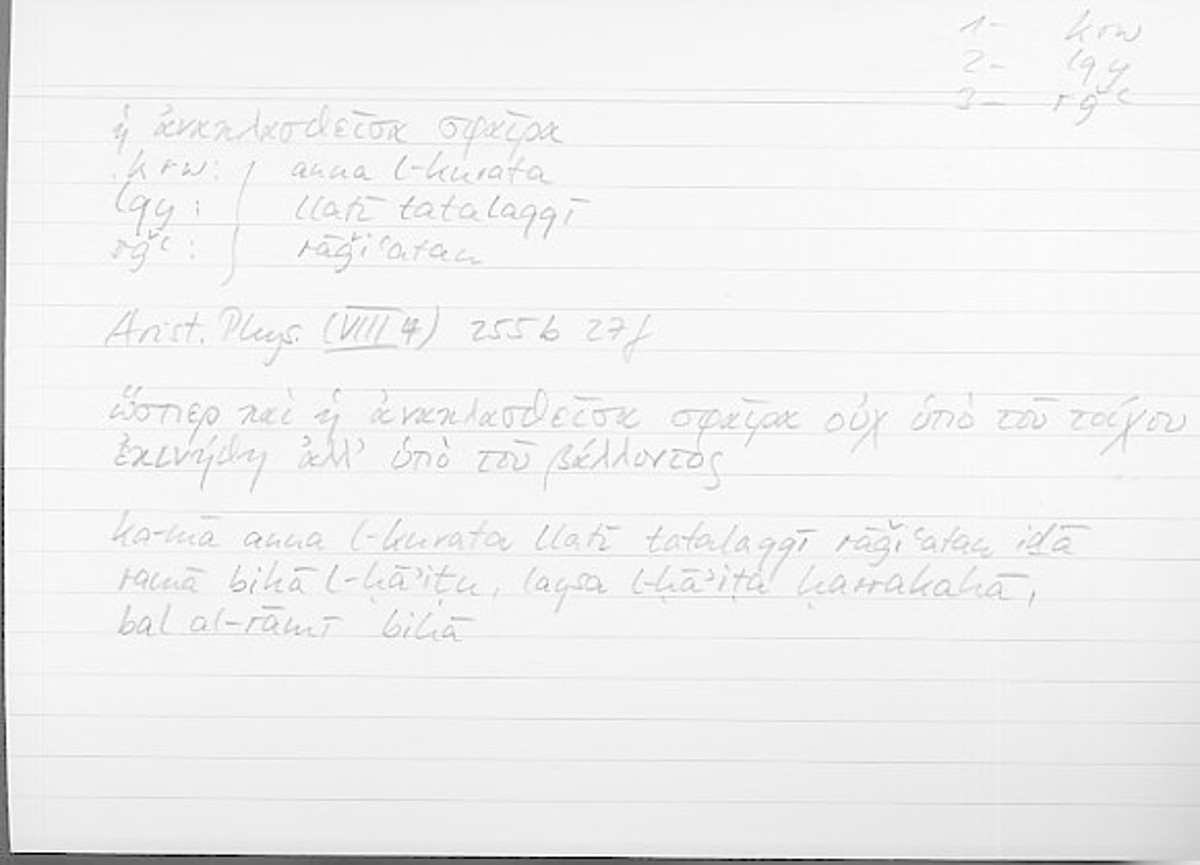 1- krw
2- lqy
3- rǧʿ
ἡ ἀνακλασθεῖσα σφαῖρα
krw: anna l-kurata
lqy: llatī tatalaqqī
rǧʿ: rāǧiʿatan
Arist. Phys. (VIII 4) 255b 27f
ὥσπερ καὶ ἡ ἀνακλασθεῖσα σφαῖρα οὐχ ὑπὸ τοῦ τοίχου
ἐκινήθη ἀλλ' ὑπὸ τοῦ βάλλοντος
ka-mā anna l-kurata llatī tatalaqqī rāǧiʿatan iḏā
ramā bihā l-ḥāʾiṭu, laysa l-ḥāʾiṭa ḥarrakahā,
bal al-rāmī bihā